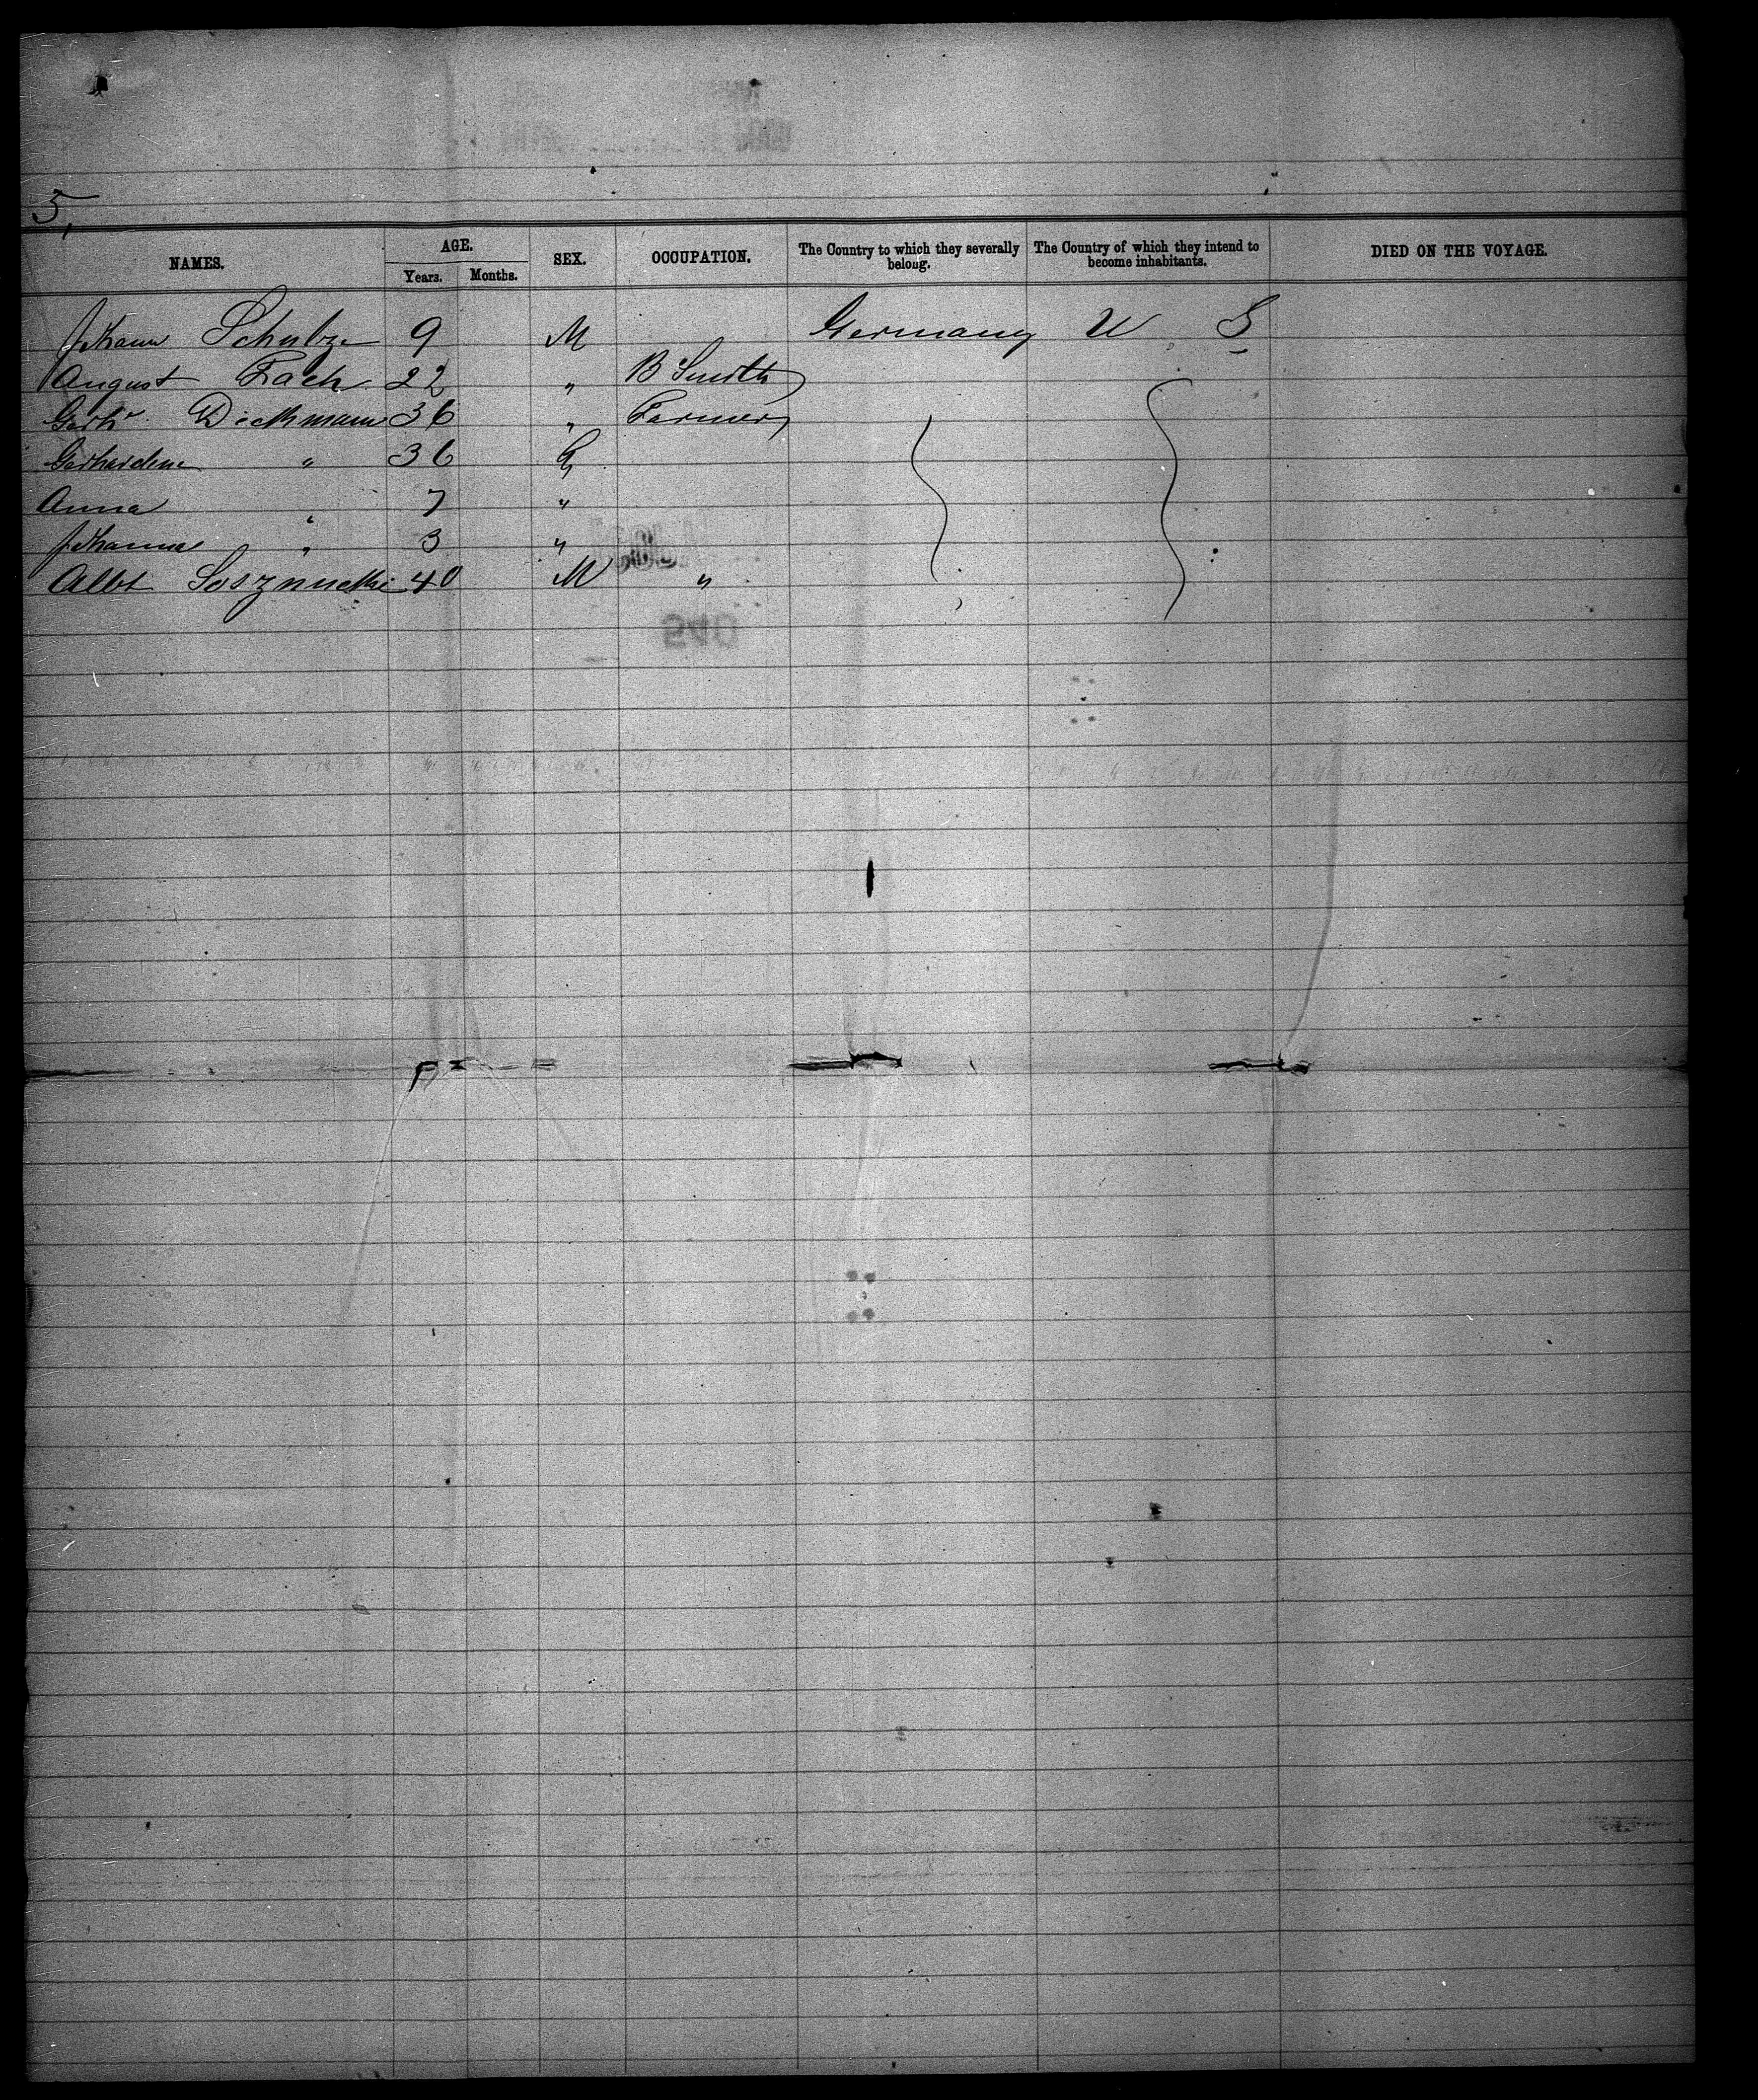 5,
NAMES. AGE. SEX. OCCUPATION. The Country to which they severally belong. The Country of which they intend to become inhabitants. DIED ON THE VOYAGE.
Years. Months.
Johann Schulze 9 M Germany U S
August Fach 22 " B Smith
Gerh Dickmann 36 " Farmer
Gerhardine " 36
Anna " 7 "
Johanna " 3 "
Albt 40 M "
540